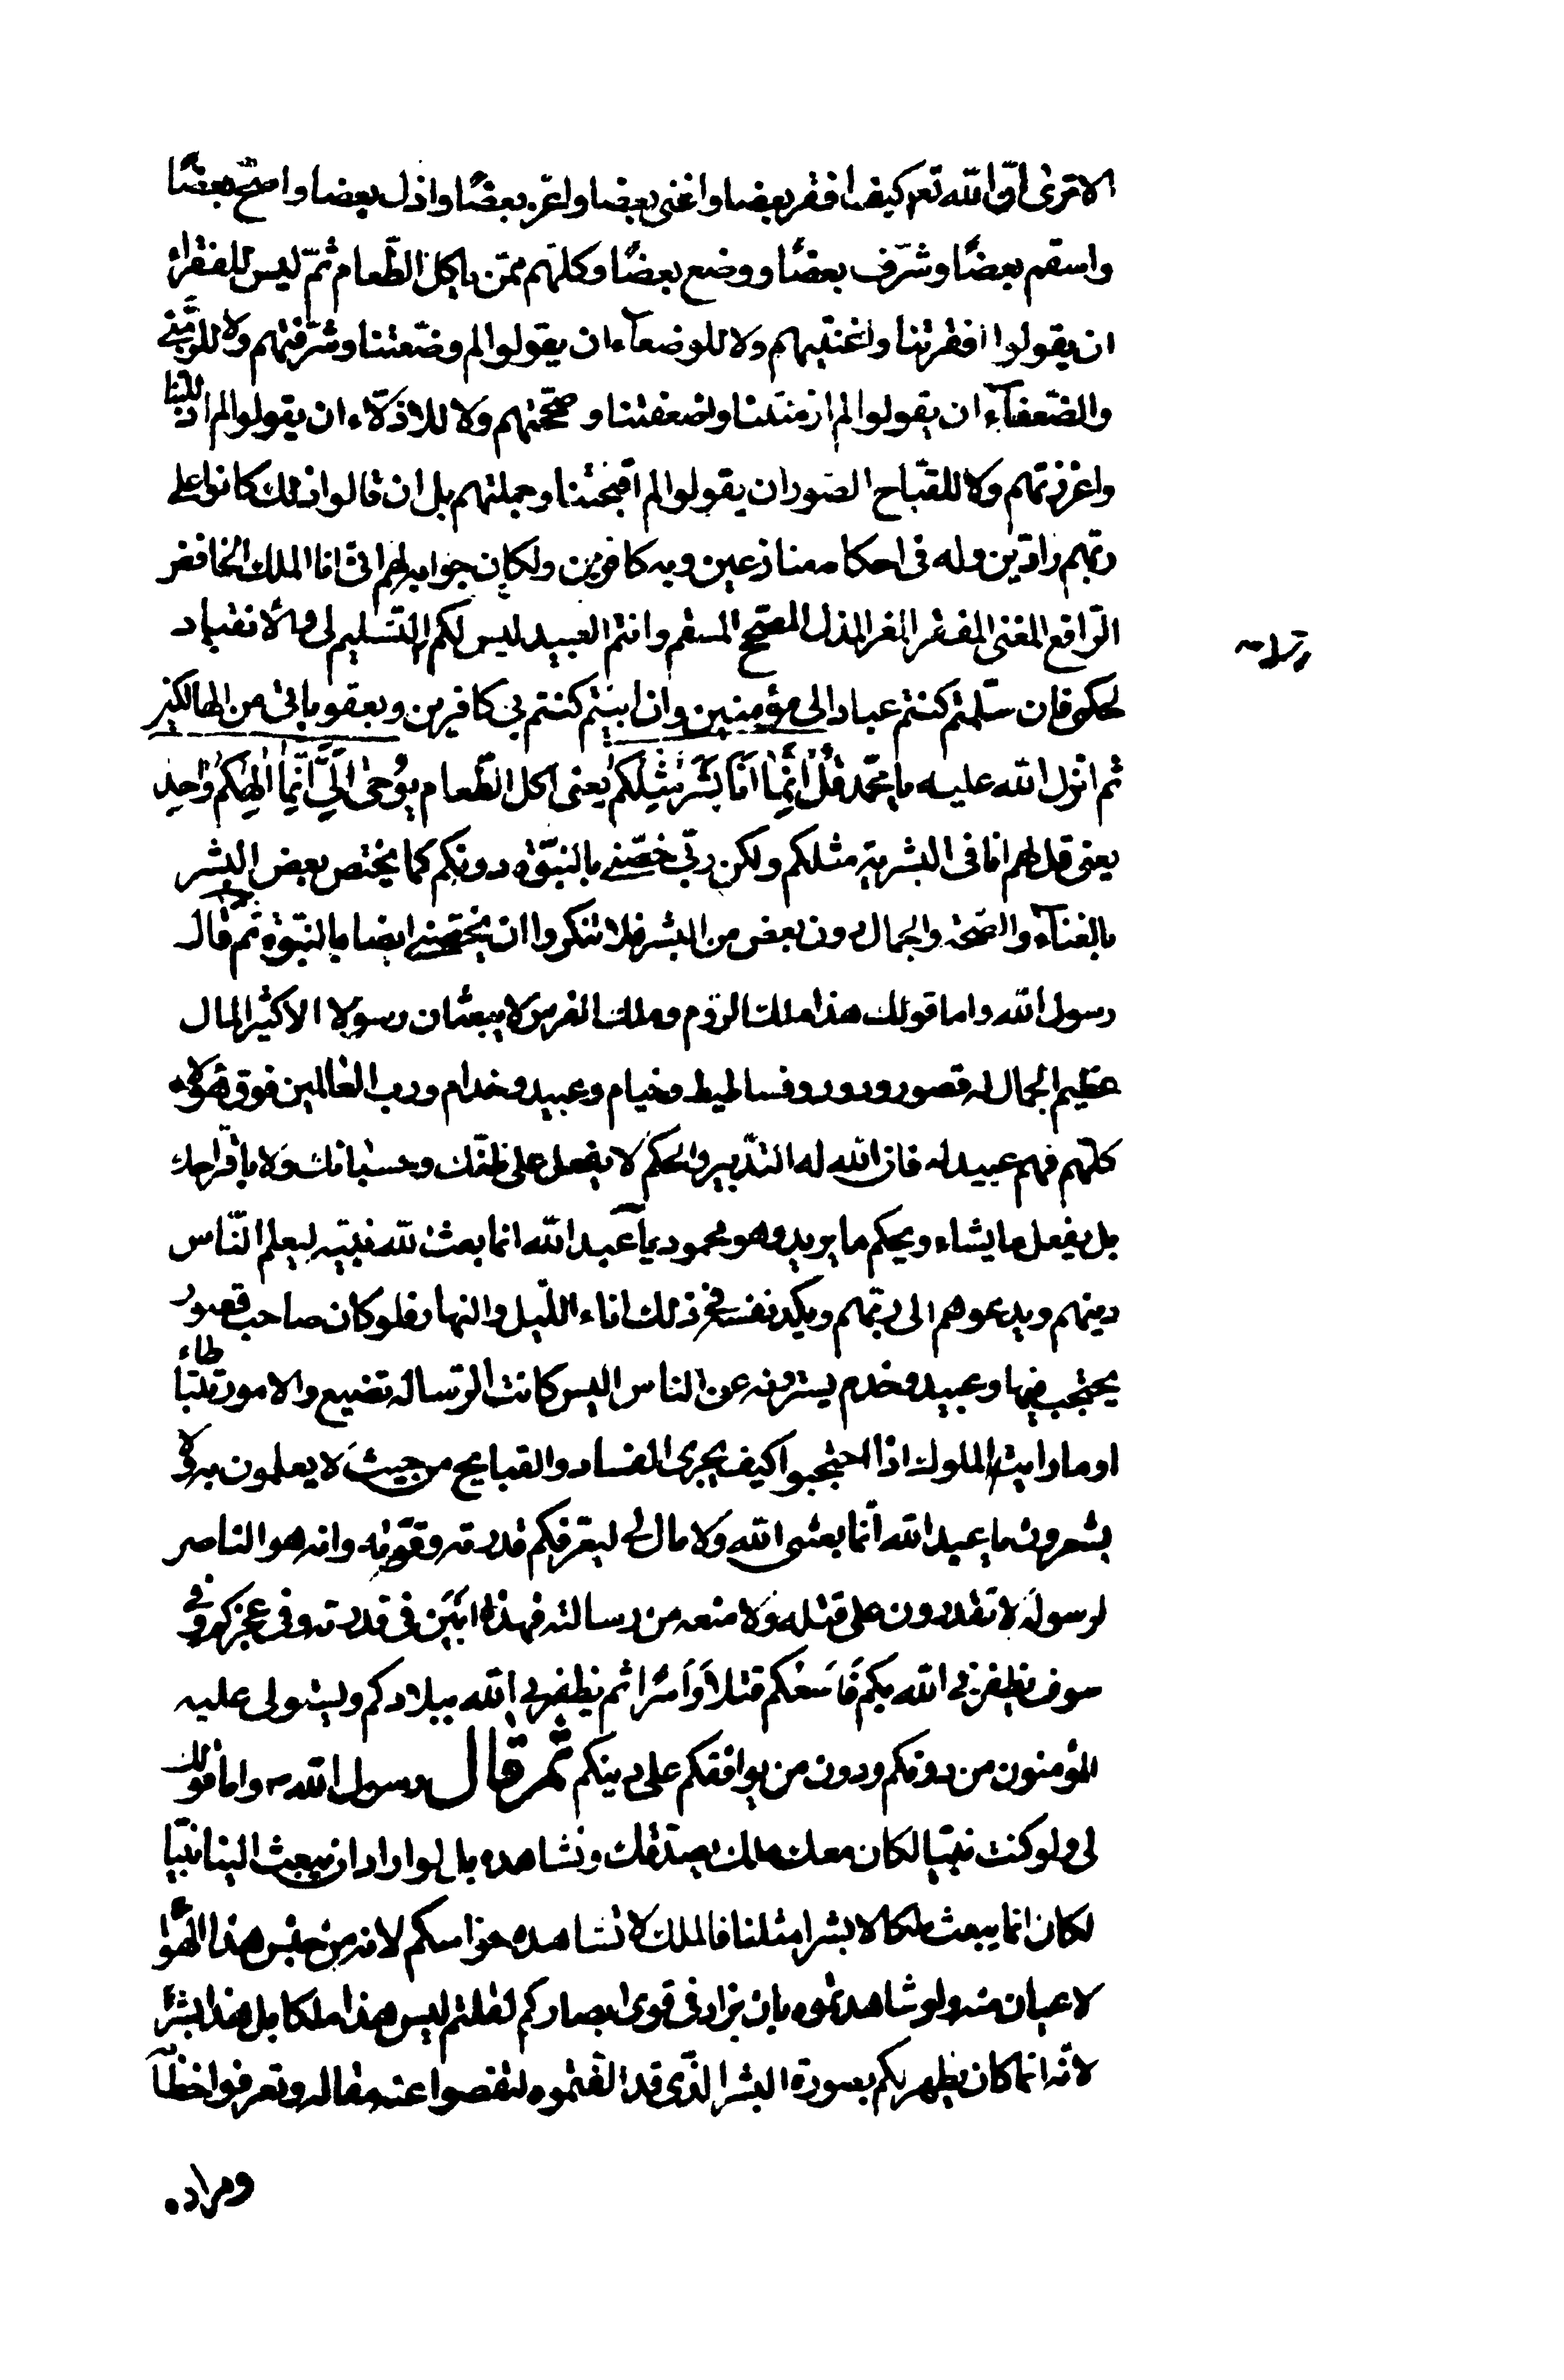 الا ترى ان الله تعـ كيف افقر بعضا واغنى بعضا واعز بعضًا واذل بعضا واصحّ بعضًا
واسقم بعضًا وشرّف بعضًا ووضع بعضًا وكلهم ممّن ياكل الطّعام ثمّ ليس للفقراء
ان يقولوا افقرتنا واغنيتهم ولا للوضعآء ان يقولوا لم وضّعتنا وشرّفتهم ولا للزّمنى
والضّعفآء ان يقولوا لم ازمنتنا واضعفتنا وصحّحتهم ولا للاذلّاء ان يقولوا لم اذللتنا
واعززتهم ولا للقبّاح الصّور ان يقولوا لم اقبحتنا وجملتهم بل ان قالوا ذلك كانوا على
ربّهم رادّين وله فى احكامه منازعين وبه كافرين ولكان جوابه لهم انّى انا الملك الخافض
الرّافع المغنى المفقر المعز المذل المصحّح المسقم وانتم العبيد ليس لكم الا التّسليم لى والانقياد
لحكمى فان سلّمتم كنتم عبادا لى مؤمنين وان ابيتم كنتم بى كافرين وبعقوباتى من الهالكين
ثم انزل الله عليه يا محمّد قُلْ اِنَّمٰا اَنَا بَشَرٌ مِثْلُكُمْ يعنى اكل الطّعام يُوحىٰ اِلَىَّ اَنَّمٰا اِلٰهُكُمْ وٰاحِد
يعنى قل لهم انا فى البشرية مثلكم ولكن ربّى خصّنى بالنبّوة دونكم كما يختص بعض البشر
بالغنآء والصّحّة والجمال دون بعض من البشر فلا تنكروا ان يختصنى ايضا بالنبّوة ثمّ قال
رسول الله واما قولك هذا ملك الرّوم وملك الفرس لا يبعثان رسولا الا كثير المال
عظيم الجمال له قصور ودور وفساطيط وخيام وعبيد وخدام ورب العٰالمين فوق هؤلاء
كلّهم فهم عبيده فان الله له التّدبير والحكم لا يفعل على ظنّك وحسبانك ولا باقتراحك
بل يفعل ما يشاء ويحكم ما يريد وهو محمود يا عبد الله انما بعث الله نبيّه ليعلم النّاس
دينهم ويدعوهم الى ربّهم ويكد نفسه فى ذلك اناء اللّيل والنهار فلو كان صاحب قصور
يحتجب فيها وعبيد وخدم يسترونه عن الناس اليس كانت الرّسالة تضيع والامور تتباطاء
او ما رايت الملوك اذا احتجبوا كيف يجرى الفساد والقبايح من حيث لا يعلمون به ولا
يشعرون يا عبد الله انّما بعثنى الله ولا مال لى ليعرّفكم قدرته وقوّته وانه هو الناصر
لرسوله لا تقدرون على قتله ولا منعه من رسالته فهذا ابَيَن فى قدرته وفى عجزكم وفى
سوف يظفرنى الله بكم فاسعكم قتلا واسرًا ثم يظفرنى الله ببلادكم ويستولى عليه
المؤمنون من دونكم ودون من يوافقكم على دينكم ثم قال رسول الله واما قولك
لى ولو كنت نبيّا لكان معك ملك يصدّقك ونشاهده بل لو اراد ان يبعث الينا نبيّا
لكان انما يبعث ملكا لا بشرا مثلنا فالملك لا تشاهده حواسكم لانه من جنس هذا الهوا
لا عيان منه ولو شاهدتموه بان يزاد فى قوى ابصاركم لقلتم ليس هذا ملكا بل هذا بشر
لانّه انما كان يظهر بكم بصورة البشر الّذى قد الفتموه لتفهموا عنه مقاله وتعرفوا خطابه
ومراده